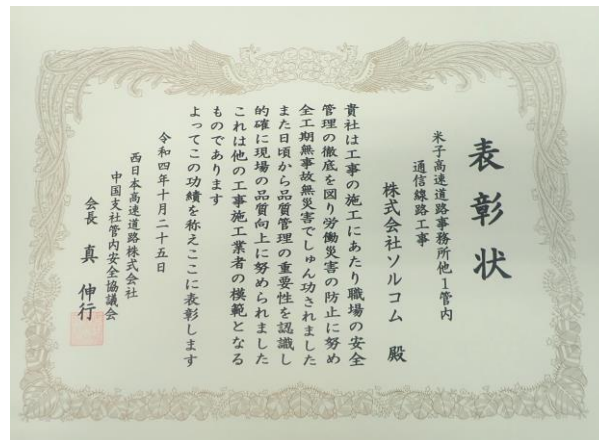 表彰状
米子高速道路事務所他１管内
通信線路工事
株式会社ソルコム 殿
貴社は工事の施工にあたり職場の安全
管理の徹底を図り労働災害の防止に努め
全工期無事故無災害でしゅん功されました
また日頃から品質管理の重要性を認識し
的確に現場の品質向上に努められました
これは他の工事施工業者の模範となる
ものであります
よってこの功績を称えここに表彰します
令和四年十月二十五日
西日本高速道路株式会社
中国支社管内安全協議会
会長 真 伸行